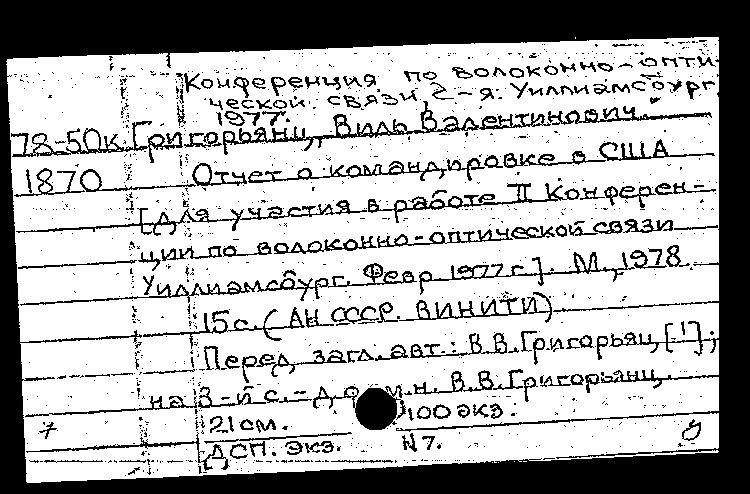 Конференция по волоконно-опти-
ческой связи, 2-я. Уиллиамсбург.
1977.
78-50к Григорьянц, Виль Валентинович.
1870 Отчет о командировке в США
[для участия в работе II Конферен-
ции по волоконно-оптической связи
Уиллиамсбург. Февр. 1977 г.]. М., 1978.
15 с. (АН СССР. ВИНИТИ)
Перед загл. авт.: В.В. Григорьян[!];
на 3-й с. - д. ф.-м.н. В.В. Григорьянц.
21 см. 100 экз.
ДСП. Экз. N 7.